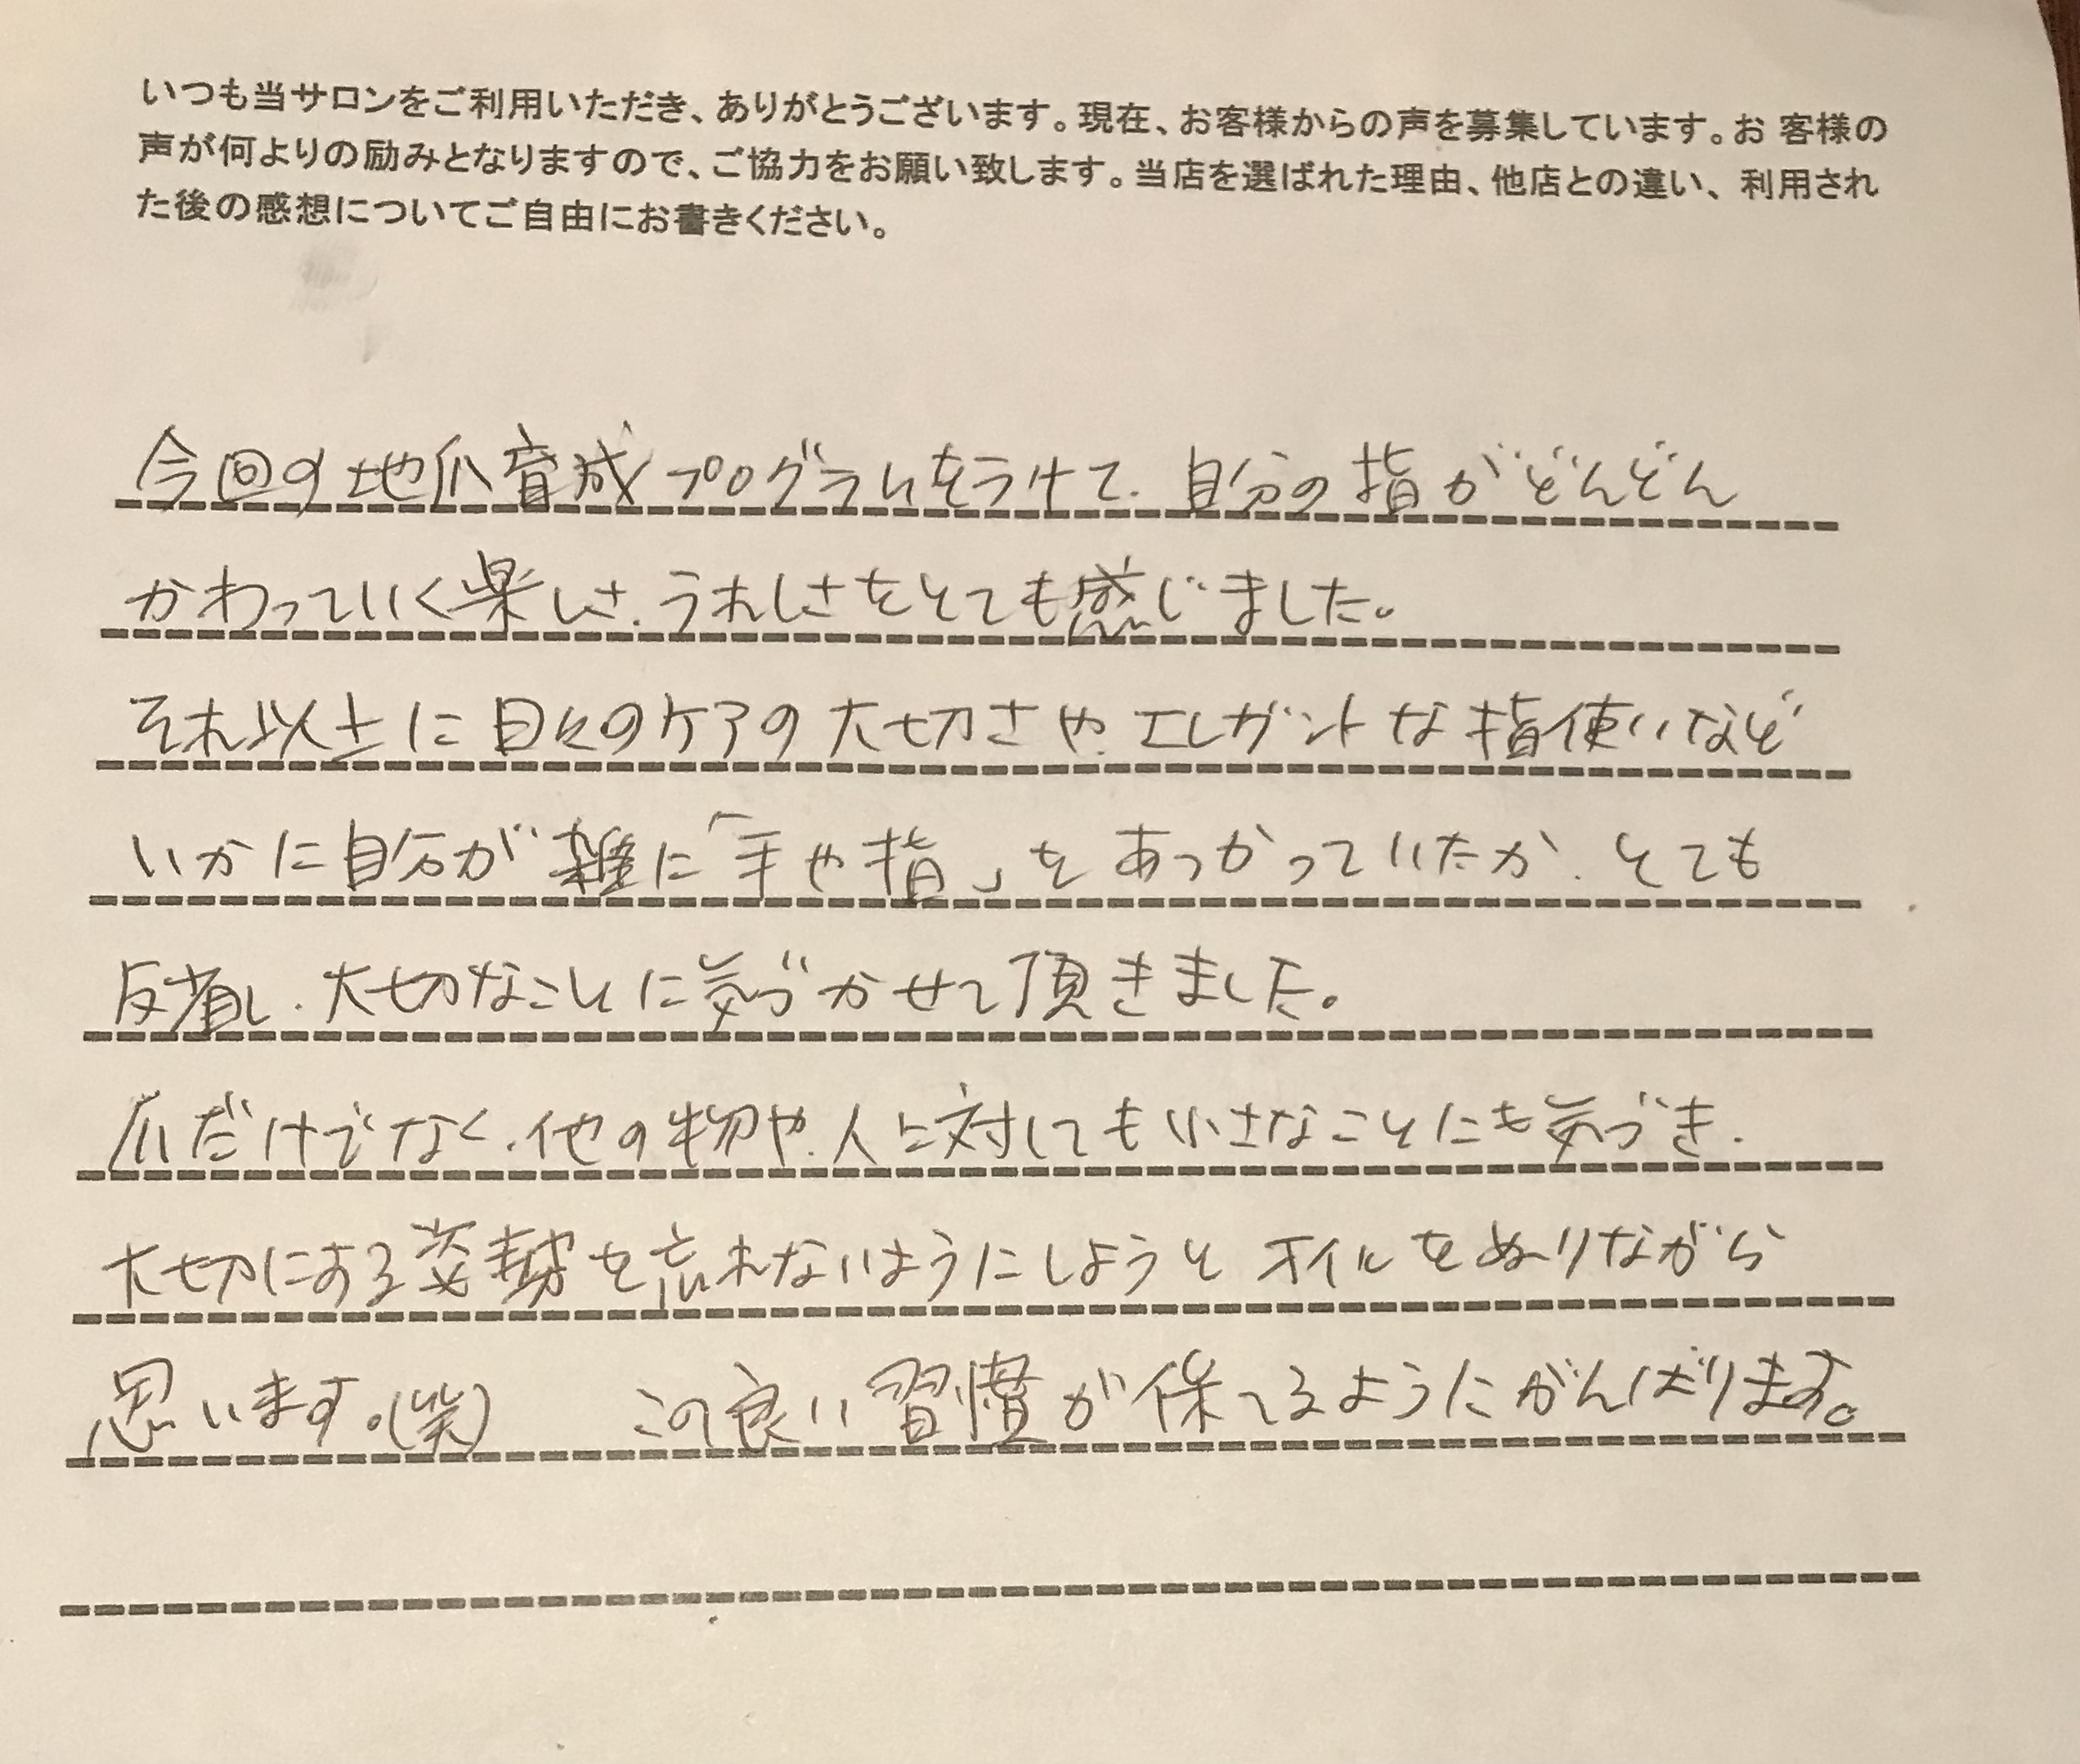 いつも当サロンをご利用いただき、ありがとうございます。現在、お客様からの声を募集しています。お 客様の
声が何よりの励みとなりますので、ご協力をお願い致します。当店を選ばれた理由、他店との違い、 利用され
た後の感想についてご自由にお書きください。
今回の地爪育成プログラムをうけて、自分の指がどんどん
かわっていく楽しさ、うれしさをとても感じました。
それ以上に日々のケアの大切さや、エレガントな指使いなど
いかに自分が雑に「手や指」をあつかっていたか、とても
反省し、大切なことに気づかせて頂きました。
爪だけでなく、他の物や、人に対しても小さなことにも気づき、
大切にする姿勢を忘れないようにしようとオイルをぬりながら
思います。(笑) この良い習慣が保てるようにがんばります。